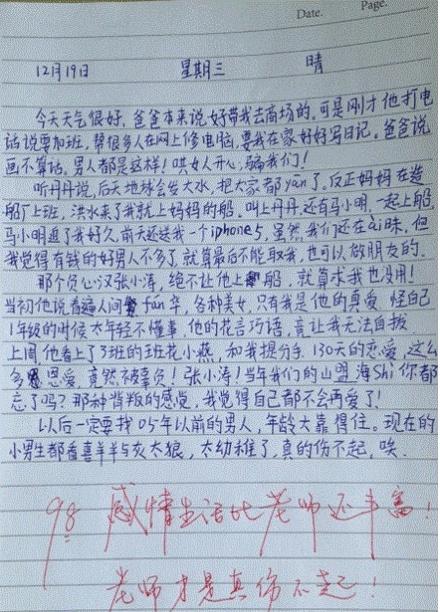 Date. Page.
12月19日 星期三 晴
今天天气很好，爸爸本来说好带我去商场的。可是刚才他打电
话说要加班，帮很多人在网上修电脑，要我在家好好写日记。爸爸说
画不算话，男人都是这样！哄女人开心，骗我们！
听丹丹说，后天地球会发大水，把大家都yān了，反正妈妈在造
船厂上班，洪水来了我就上妈妈的船。叫上丹丹，还有马小明，一起上船，
马小明追了我好久，前天还送我一个iphone5，虽然我们还在ài昧，但
我觉得有钱的好男人不多了，就算最后不能取我，也可以做朋友的。
那个负心汉张小涛，绝不让他上船，就算求我也没用！
当初他说看遍人间fán华，各种美女，只有我是他的真爱，怪自己
1年级的时候太年轻不懂事，他的花言巧语，竟让我无法自拔
上周他看上了3班的班花小燕，和我提分手，130天的恋爱，这么
多恩爱，竟然被辜负！张小涛！当年我们的山盟海Shi你都
忘了吗？那种背叛的感觉，我觉得自己都不会再爱了！
以后一定要找05年以前的男人，年龄大靠得住。现在的
小男生都看喜羊羊与灰太狼，太幼稚了，真的伤不起，唉.
98 感情生活比老师还丰富！
老师才是真伤不起！